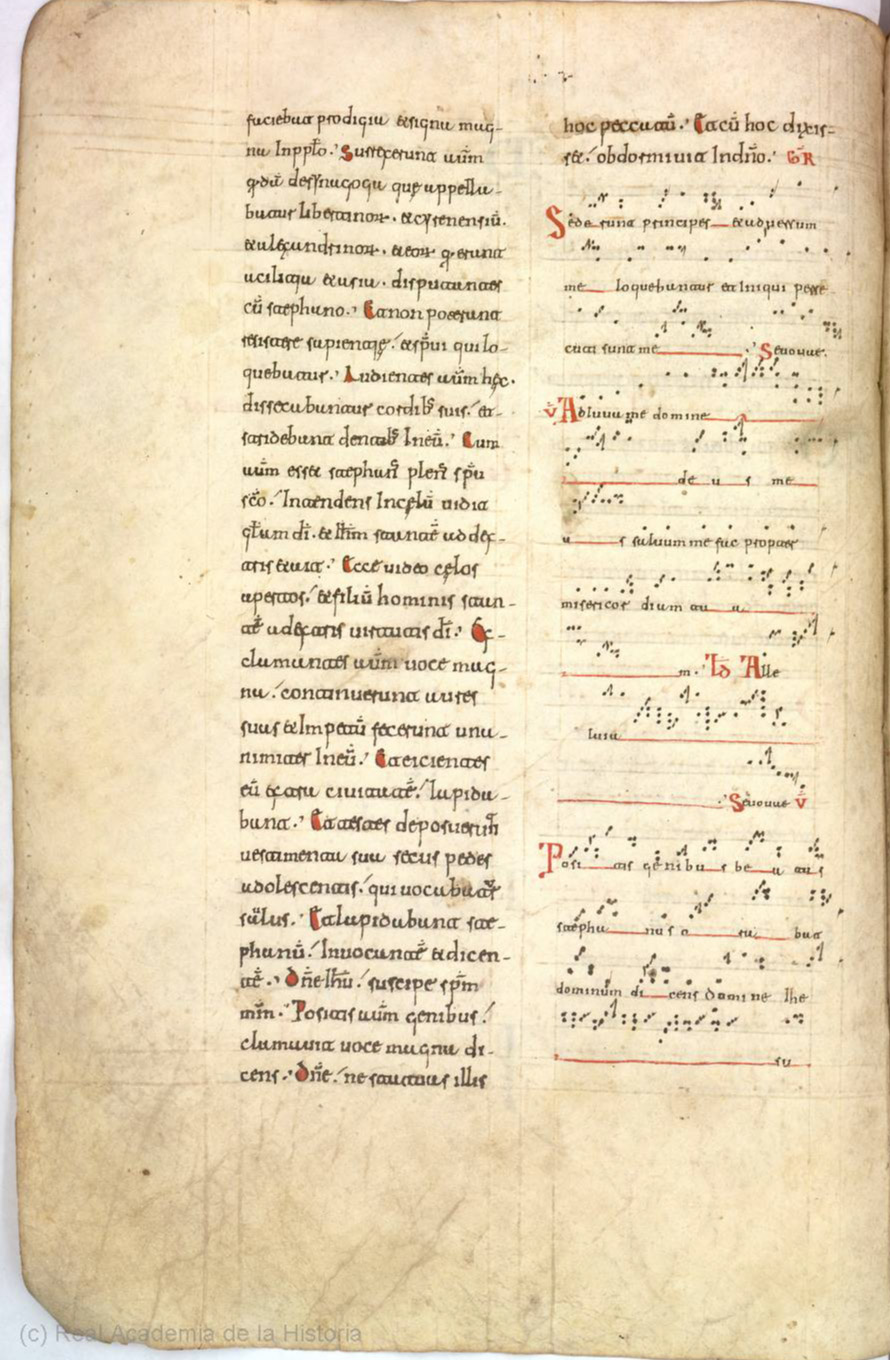 faciebat prodigia & signa mag-
na In pplo. Surrexerunt aut̄m
q̄dā de synagoga que appella-
batur libertinor. & cyrenensiū.
& alexandrinor. & eor q̄ erant
a cilicia & asia. disputantes
cū stephano. Et non poterant
resistere sapientię. & sp̄ui qui lo-
quebatur. Audientes aut̄m hęc.
dissecabantur cordib; suis. et
stridebant dentib; In eū. Cum
aut̄m esset stephan; plen; sp̄u
sc̄o. Intendens In cęlū uidit
gl̄am dī. & ih̄m stantē ad dex-
tris & ait. Ecce uideo cęlos
apertos. & filiū hominis stan-
tē ad extris uirtutis dī. Ex-
clamantes aut̄m uoce mag-
na. continuerunt aures
suas & Impetū fecerunt una-
nimiter In eū. Et eicientes
eū extra ciuitatē. lapida-
bant. Et testes deposuerunt
uestimenta sua secus pedes
adolescentis. qui uocabatur
saulus. Et lapidabant ste-
phanū. Inuocantē & dicen-
tē. Dn̄e ih̄u. suscipe sp̄m
mm̄. Positis aut̄m genibus.
clamauit uoce magna di-
cens. Dn̄e. ne statuas illis
hoc peccatū. Et cū hoc dixis-
set. obdormiuit In dn̄o. GR
Sede runt principes & aduersum
me loquebantur et Iniqui perse
cuti sunt me Seuouae.
V Adiuua me domine
de u s me
u s saluum me fac propter
misericor diam tu a
m. Id Alle
luia
Seuouae V
Posi tis genibu s be a tus
stepha nus o ra bat
dominum di cens domine Ihe
su
(c) Real Academia de la Historia